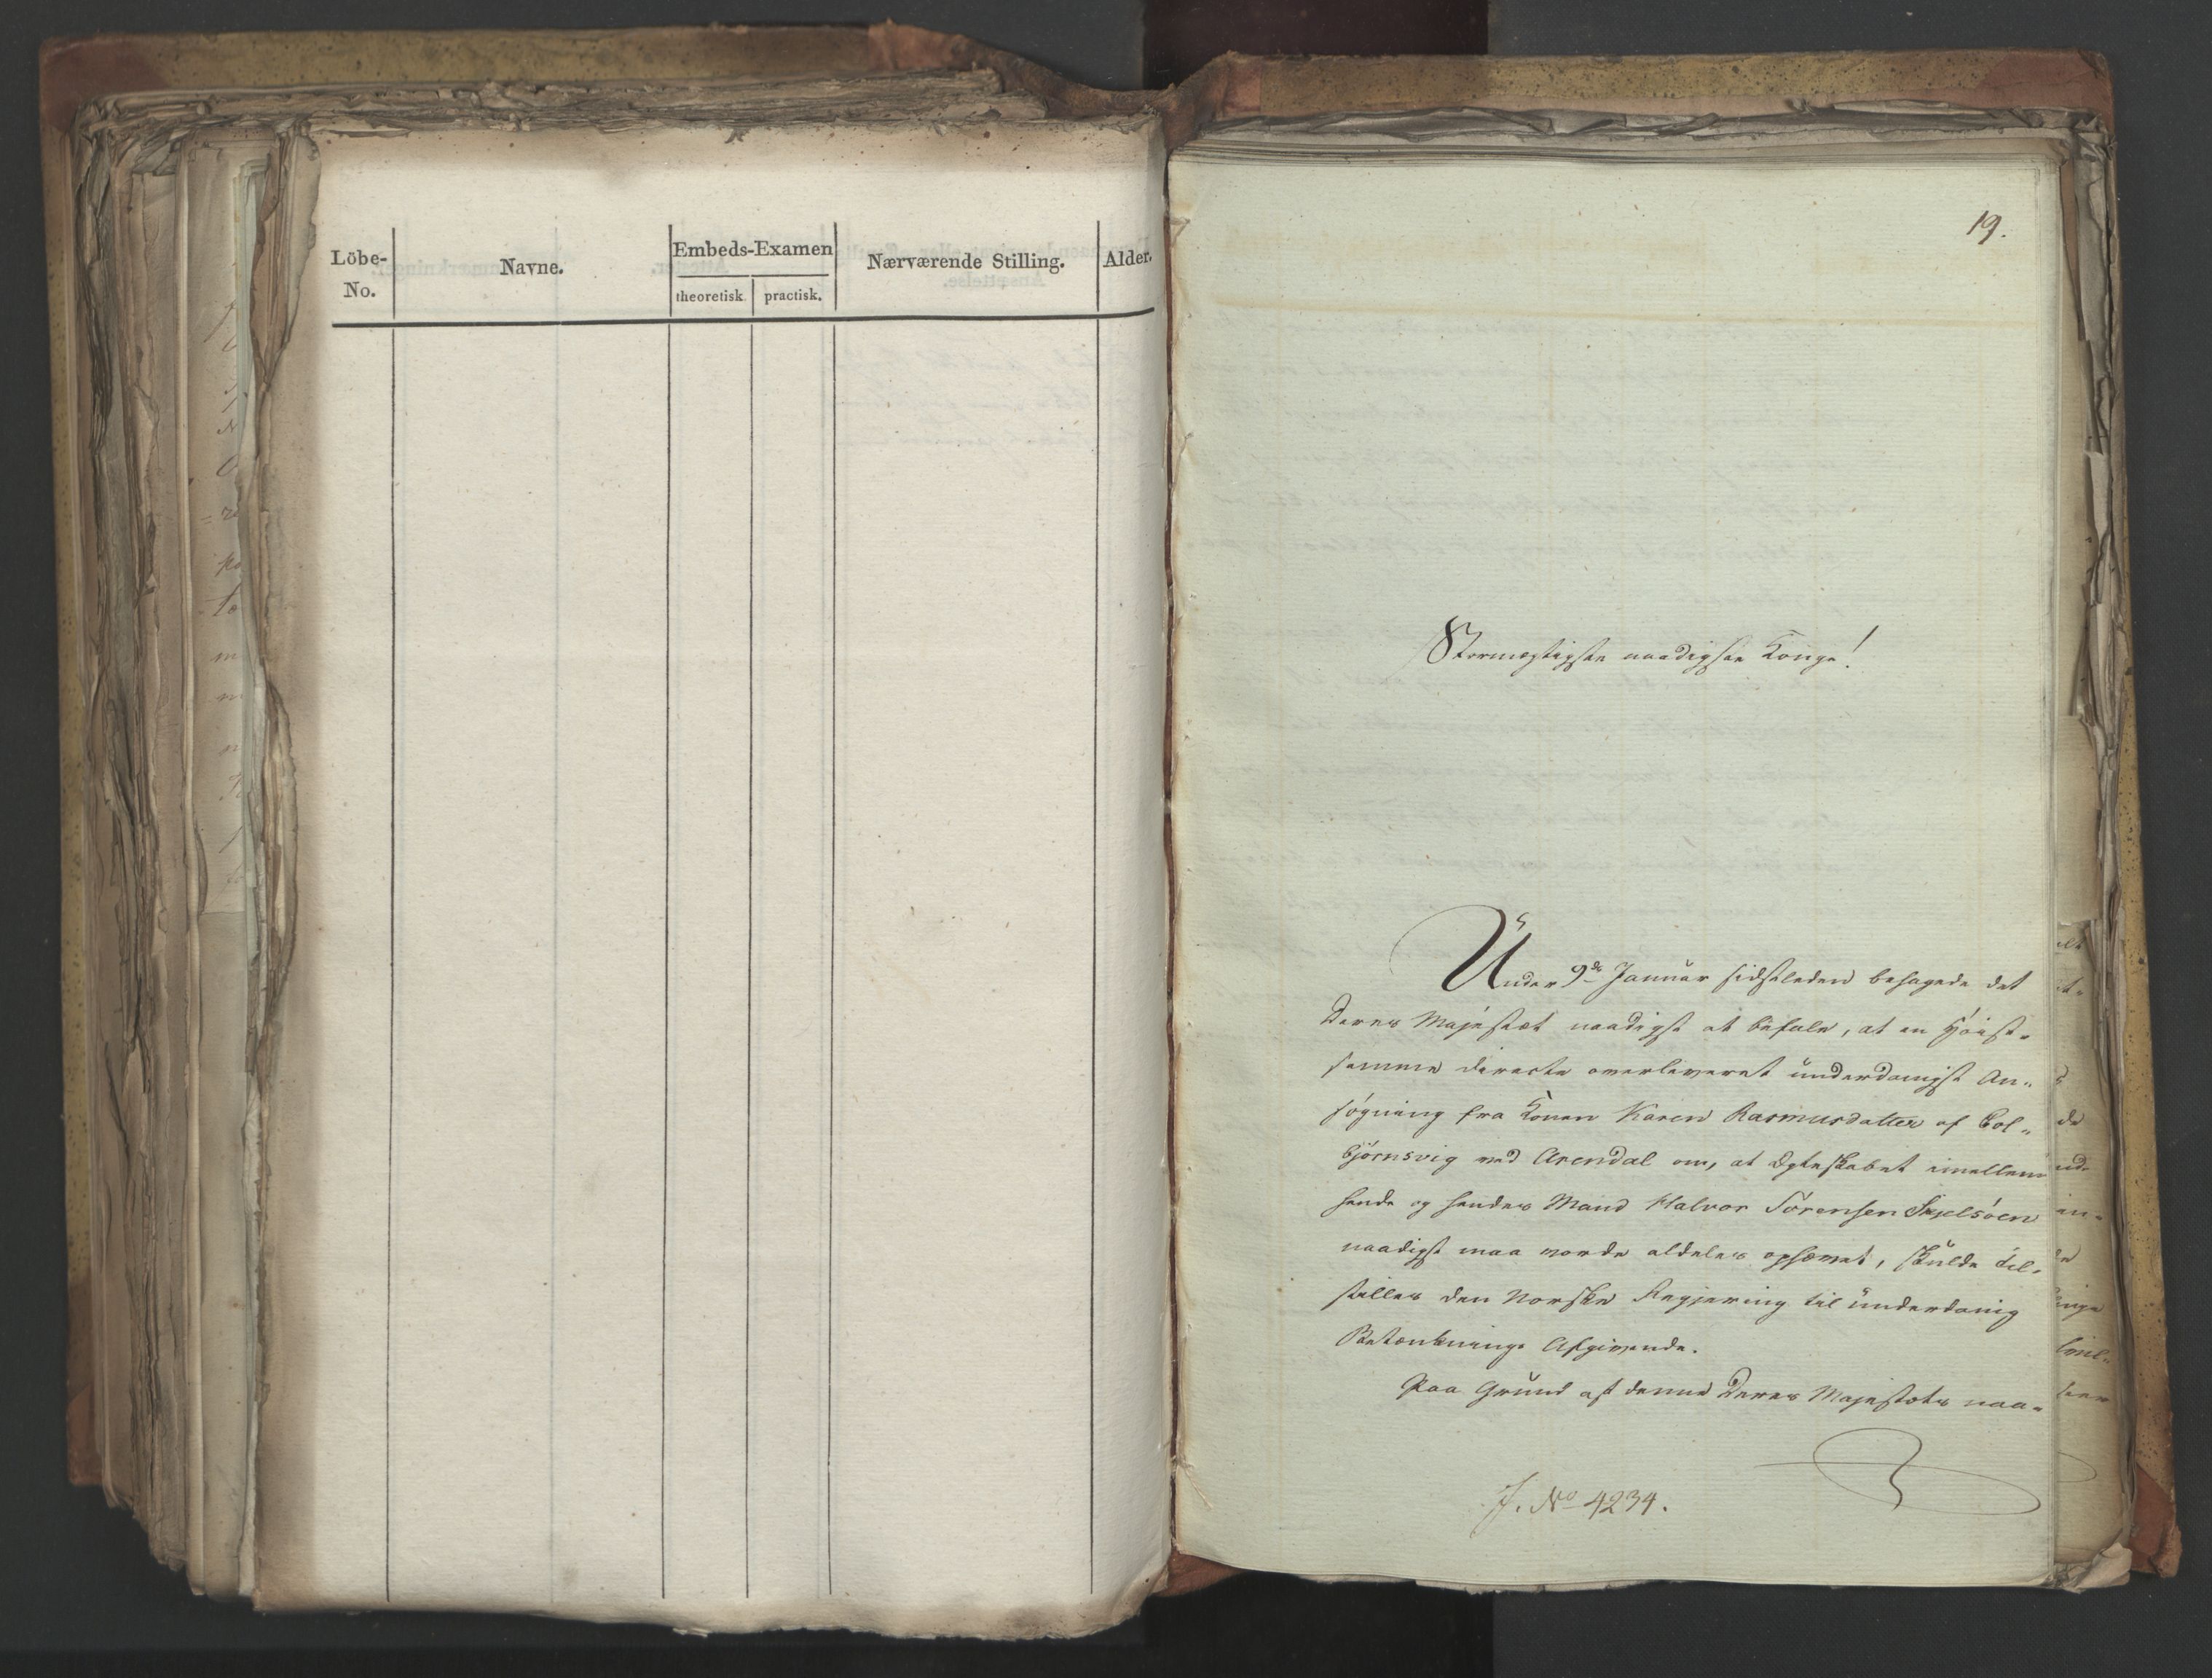 Löbe-
No.
Navne.
Embeds-Examen
theoretisk
practisk.
Nærværende Stilling.
Alder.
19.
Stormægtigste naadigste Konge!
Under 9de Januar sidstleden behagede det
Deres Majestæt naadigst at befale, at en Høist-
samme directe overleveret underdanigst An-
søgning fra Konen Karen Rasmusdatter af Col-
bjørnsvig ved Arendal om, at Ægteskabet imellem
hende og hendes Mand Halvor Sørensen
naadigst maa vorde aldeles ophævet, skulde til-
stilles den Norske Regjering til underdanig
Betænknings Afgivende.
Paa Grund af denne Deres Majestæts naa-
J. No 4234.